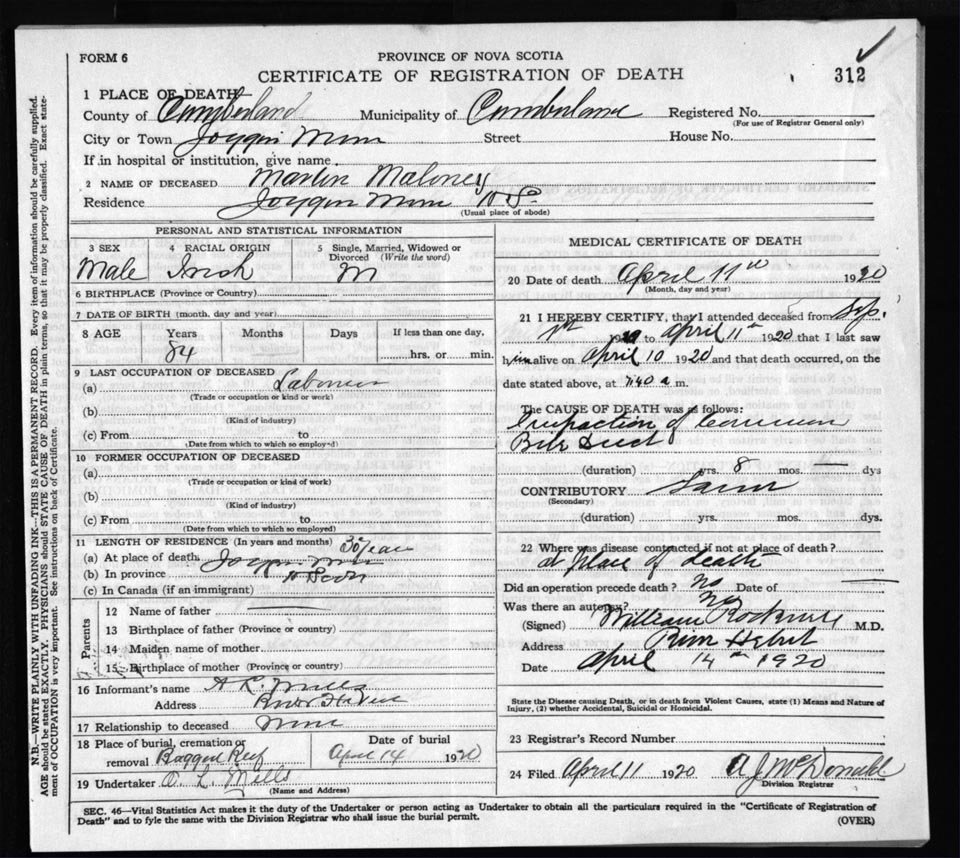 FORM 6
PROVINCE OF NOVA SCOTIA
CERTIFICATE OF REGISTRATION OF DEATH
312
1 PLACE OF DEATH
County of Cumberland Municipality of Cumberland Registered No.
(For use of Registrar General only)
City or Town Joggin Street House No.
If in hospital or institution, give name
2 NAME OF DECEASED Martin Maloney
Residence Joggin
(Usual place of abode)
PERSONAL AND STATISTICAL INFORMATION
3 SEX 4 RACIAL ORIGIN 5 Single, Married, Widowed or
Divorced (Write the word)
Male Irish M
6 BIRTHPLACE (Province or Country)
7 DATE OF BIRTH (month, day and year)
8 AGE Years Months Days If less than one day,
84 hrs. or min.
9 LAST OCCUPATION OF DECEASED
(a)
(Trade or occupation or kind or work)
(b)
(Kind of industry)
(c) From to
(Date from which to which so employed)
10 FORMER OCCUPATION OF DECEASED
(a)
(Trade or occupation or kind of work)
(b)
(Kind of industry)
(c) From to
(Date from which to which so employed)
11 LENGTH OF RESIDENCE (In years and months) 30
(a) At place of death
(b) In province
(c) In Canada (if an immigrant)
Parents
12 Name of father
13 Birthplace of father (Province or country)
14 Maiden name of mother
15 Birthplace of mother (Province or country)
16 Informant's name Mills
Address River
17 Relationship to deceased
18 Place of burial, cremation or Date of burial
removal Ragged Reef April 14 1920
19 Undertaker Mills
(Name and Address)
MEDICAL CERTIFICATE OF DEATH
20 Date of death April 11th 1920
(Month, day and year)
21 I HEREBY CERTIFY, that I attended deceased from Sep.
to April 11th 1920 that I last saw
him alive on April 10 1920 and that death occurred, on the
date stated above, at 7.40 a m.
The CAUSE OF DEATH was as follows:
of Common
Bile Duct
(duration) yrs. 8 mos. — dys
CONTRIBUTORY
(Secondary)
(duration) yrs. mos. dys.
22 Where was disease contracted if not at place of death?
at place of death
Did an operation precede death? no Date of
Was there an autopsy? no
(Signed) William M.D.
Address River Hebert
Date April 14th 1920
State the Disease causing Death, or in death from Violent Causes, state (1) Means and Nature of
Injury, (2) whether Accidental, Suicidal or Homicidal.
23 Registrar's Record Number
24 Filed April 11 1920 A J McDonald
Division Registrar
SEC. 46—Vital Statistics Act makes it the duty of the Undertaker or person acting as Undertaker to obtain all the particulars required in the "Certificate of Registration of
Death" and to fyle the same with the Division Registrar who shall issue the burial permit.
(OVER)
N.B.—WRITE PLAINLY WITH UNFADING INK—THIS IS A PERMANENT RECORD. Every item of information should be carefully supplied.
AGE should be stated EXACTLY. PHYSICIANS should STATE CAUSE OF DEATH in plain terms, so that it may be properly classified. Exact state-
ment of OCCUPATION is very important. See instructions on back of Certificate.